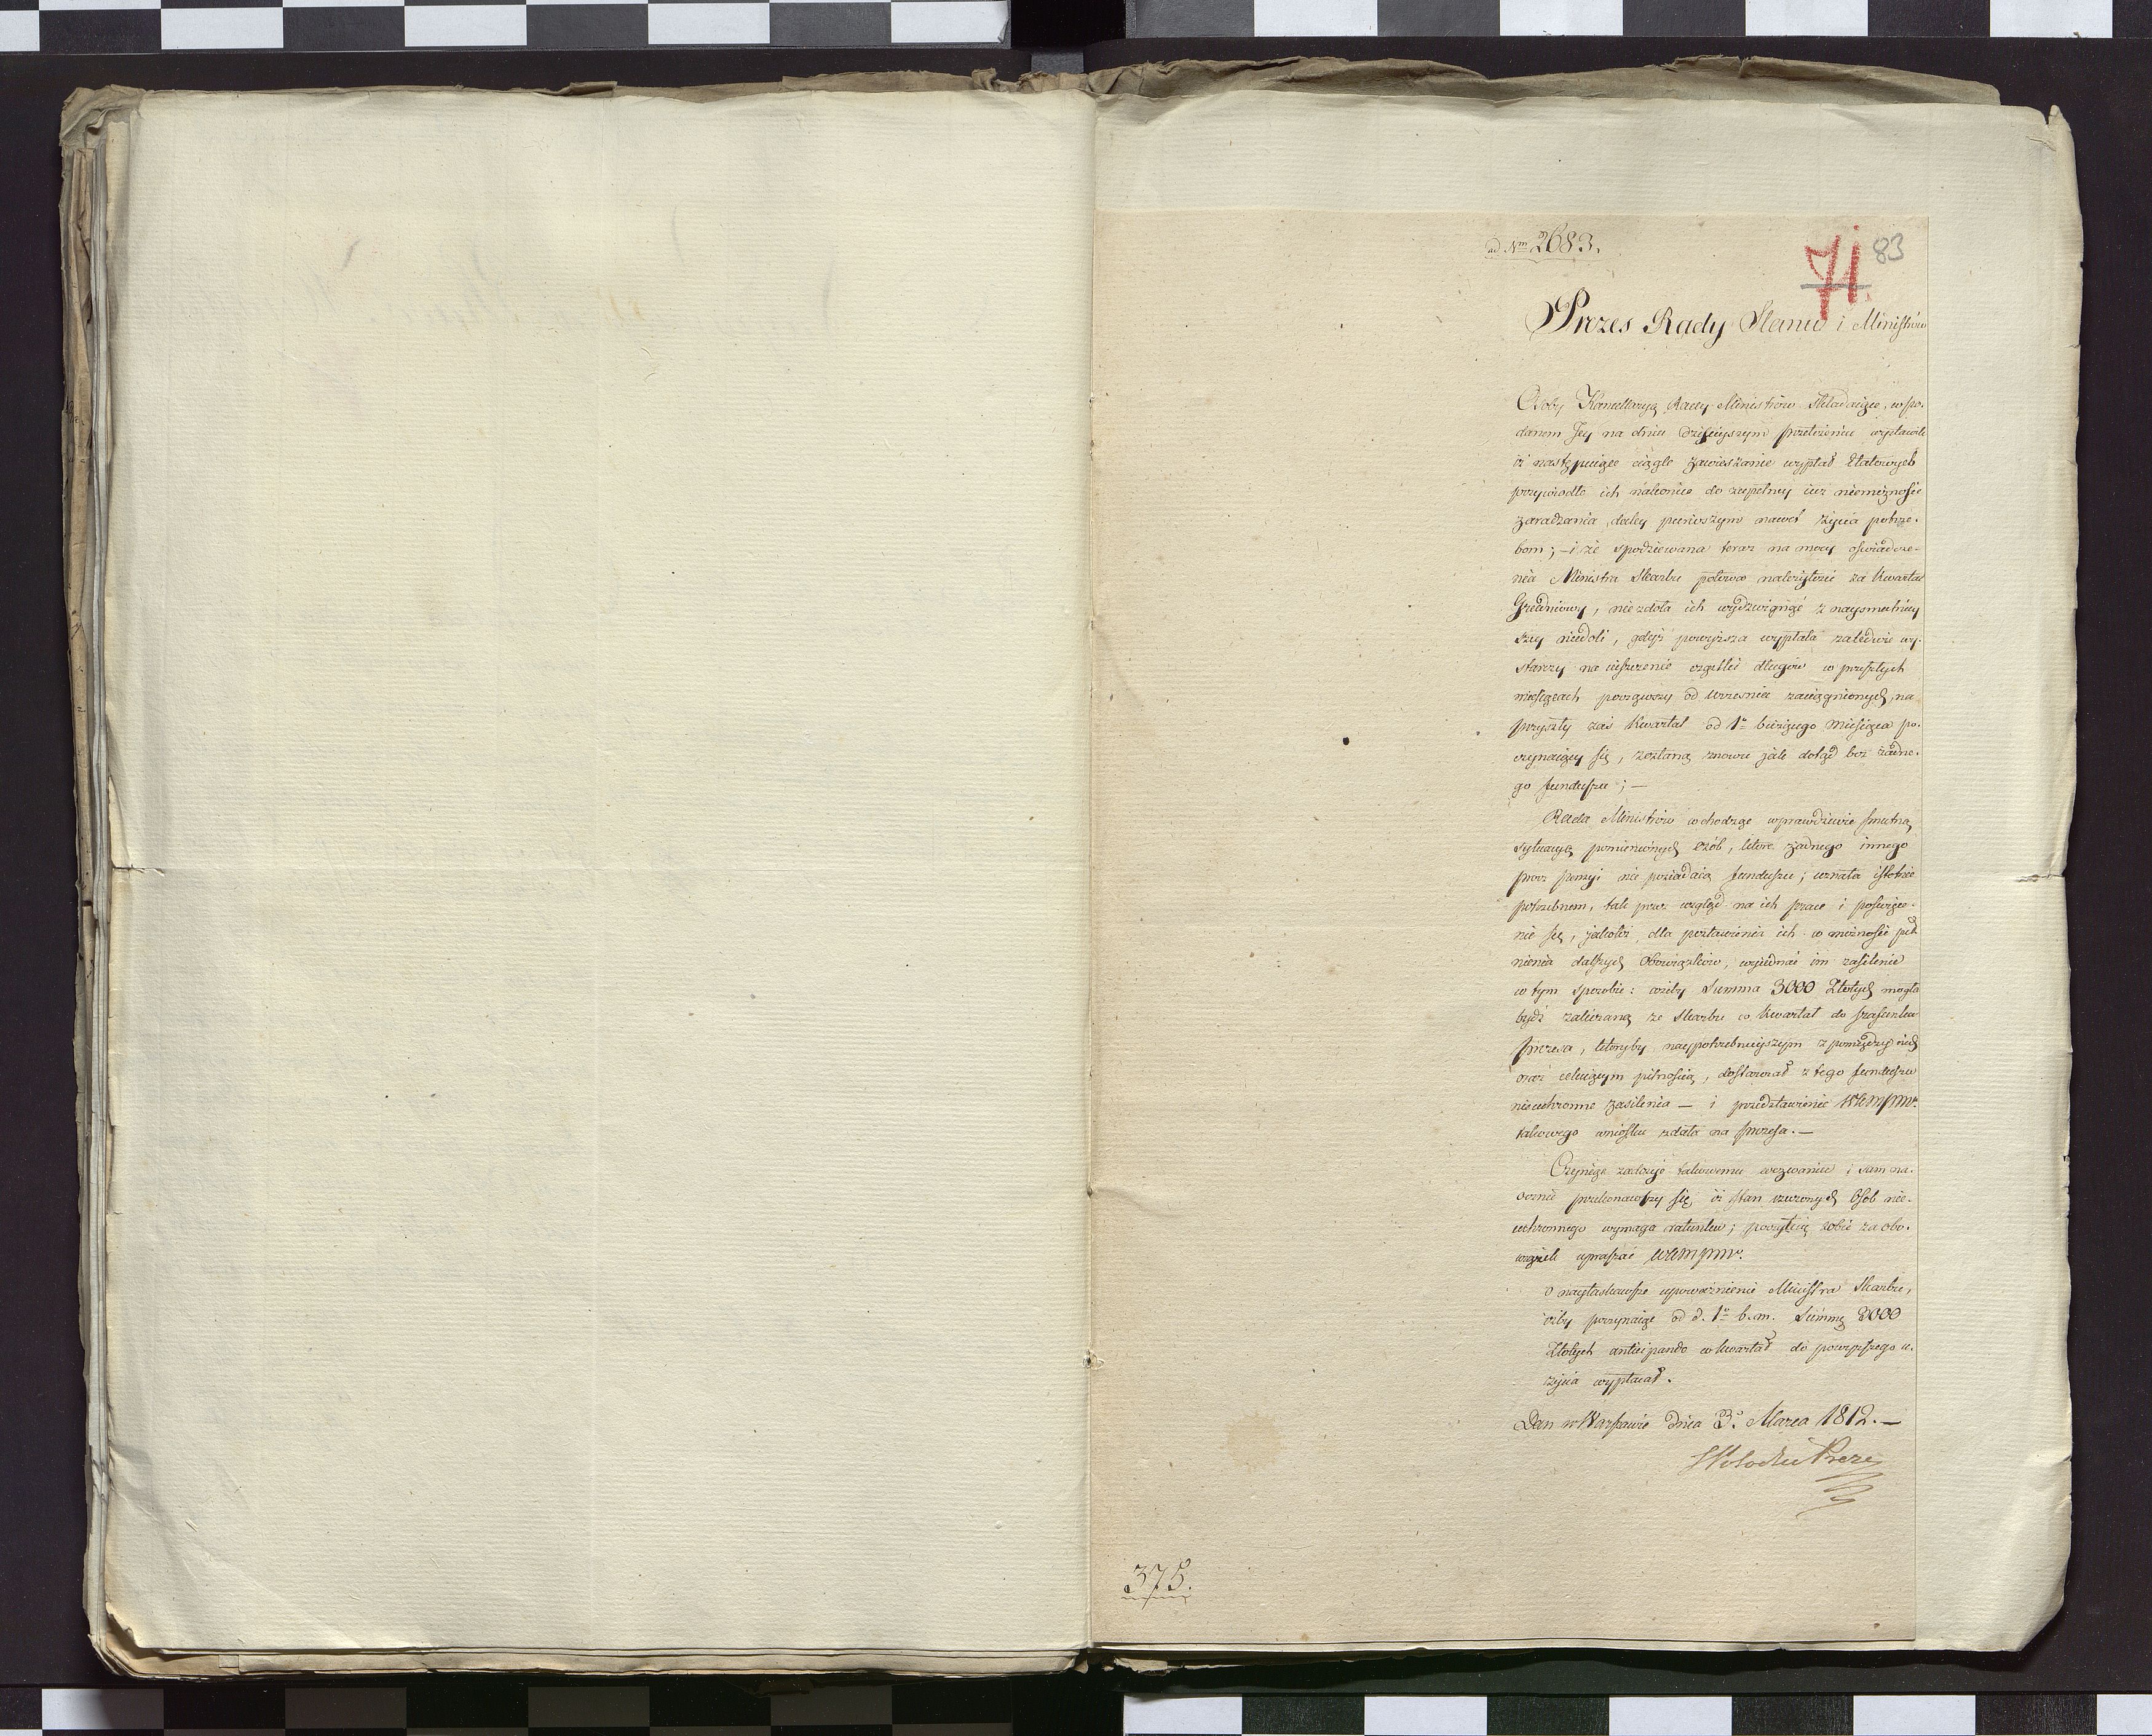 ad Nm 2683.
71. 83
Prezes Rady Stanu i Ministrów
Osoby Kancellaryą Rady Ministrów składaiące, w po-
danem Jey na dniu dzisieyszym przełożeniu wystawiły
iż następuiące ciągle zawieszanie wypłat Etatowych
przywiodło ich nakoniec do zupełney iuż niemożności
zaradzania, daley pierwszym nawet życia potrze-
bom; – i że spodziewana teraz na mocy oświadcze-
nia Ministra Skarbu połowa należytości za kwartał
Grudniowy, nie zdoła ich wydźwignąć z naysmutniey
szey niedoli, gdyż powyższa wypłata zaledwie wy-
starczy na uiszczenie cząstki długów w przeszłych
miesiącach począwszy od Września zaciągnionych, na
przyszły zaś kwartał od 1o bieżącego miesiąca po-
czynaiący się, zostaną znowu jak dotąd bez żadne-
go funduszu; –
Rada Ministrów wchodząc w prawdziwie smutną
sytuacyą pomienionych osób, które żadnego innego
prócz pensyi nie posiadaią funduszu; uznała istotnie
potrzebnem, tak przez wzgląd na ich prace i poświęce-
nie się, jakoteż dla postawienia ich w możności peł-
nienia dalszych obowiązków, wyiednać im zasilenie
w tym sposobie: ażeby Summa 3000 Złotych mogła
bydź zaliczaną ze Skarbu co kwartał do szafunku
Prezesa, któryby naypotrzebnieyszym z pomiędzy nich
oraz celuiącym pilnością, dostarczał z tego funduszu
nieuchronne zasilenia – i przedstawienie WKMPMr.
takowego wniosku zdała na Prezesa. –
Czyniąc zadosyć takowemu wezwaniu i sam na-
ocznie przekonawszy się, iż stan rzeczonych Osób nie-
uchronnego wymaga ratunku; poczytuię sobie za obo-
wiązek upraszać WKMPMr.
o nayłaskawsze upoważnienie Ministra Skarbu,
ażeby poczynaiąc od d. 1o b. m. Summę 3000
Złotych anticipando co kwartał do powyższego u-
życia wypłacał.
Dan w Warszawie dnia 3o Marca 1812. –
Prezes
375.